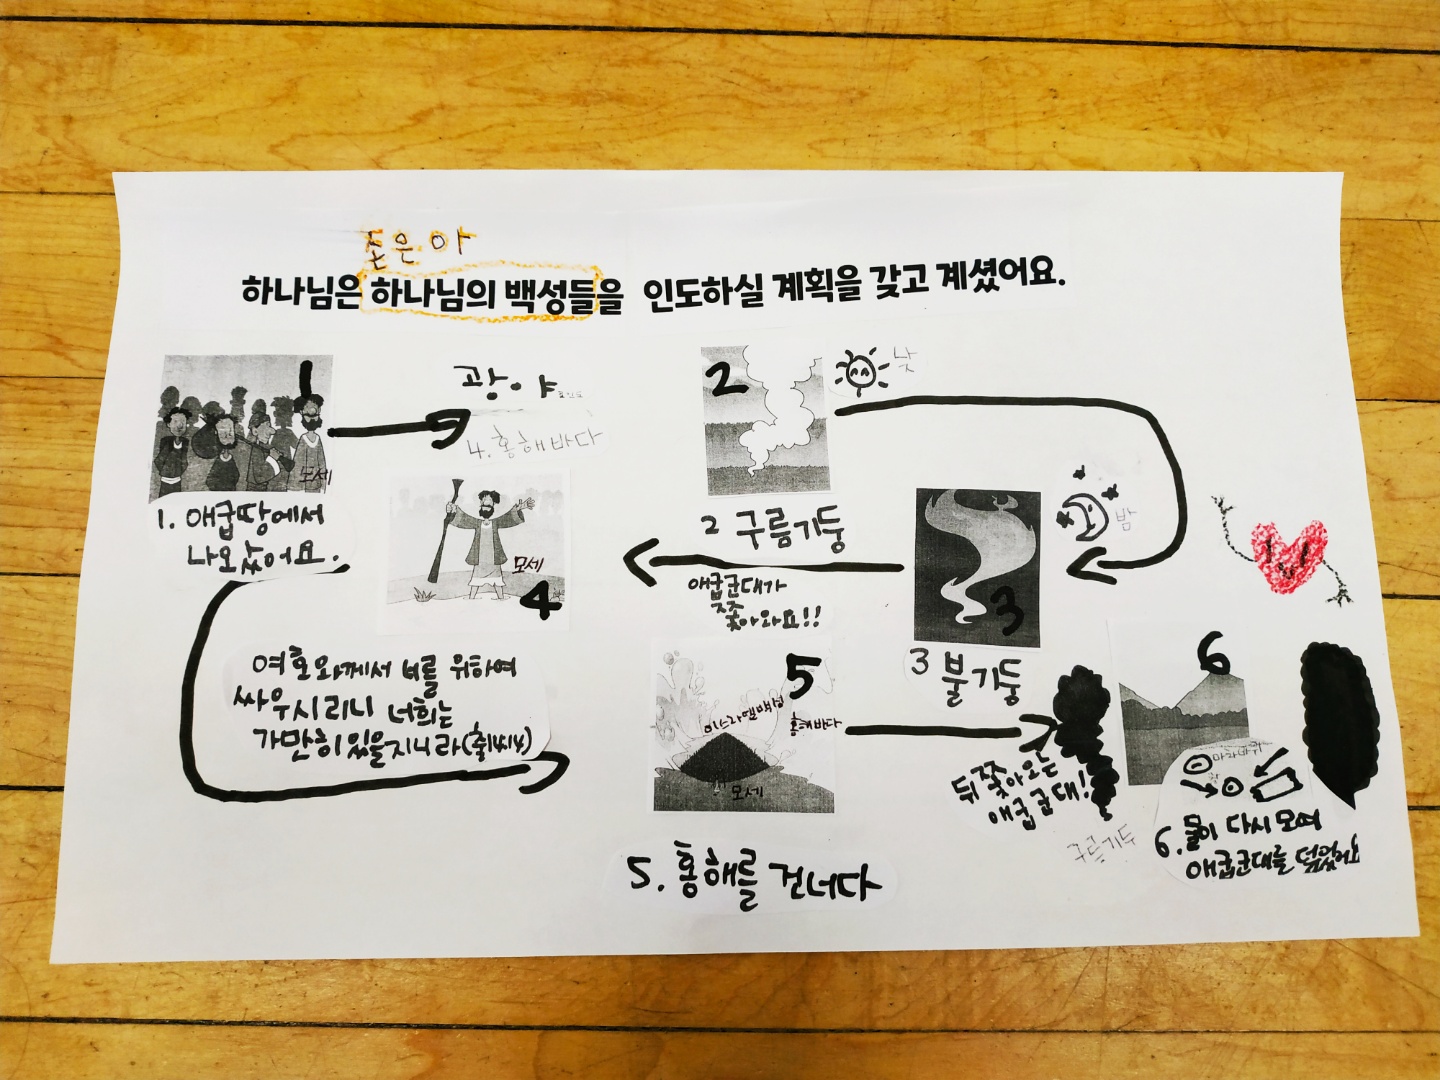 존은아
하나님은 하나님의 백성들을 인도하실 계획을 갖고 계셨어요.
1
모세
1. 애굽땅에서
나왔어요.
광야
4. 홍해바다
모세
4
여호와께서 너를 위하여
싸우시리니 너희는
가만히 있을지니라(출14:14)
2
낮
2 구름기둥
밤
3
3 불기둥
애굽군대가
쫓아와요!!
5
이스라엘백성
홍해바다
모세
5. 홍해를 건너다
뒤쫓아오는
애굽군대!
구름기두
6
마차바퀴
6. 물이 다시 모여
애굽군대를 덮었어요